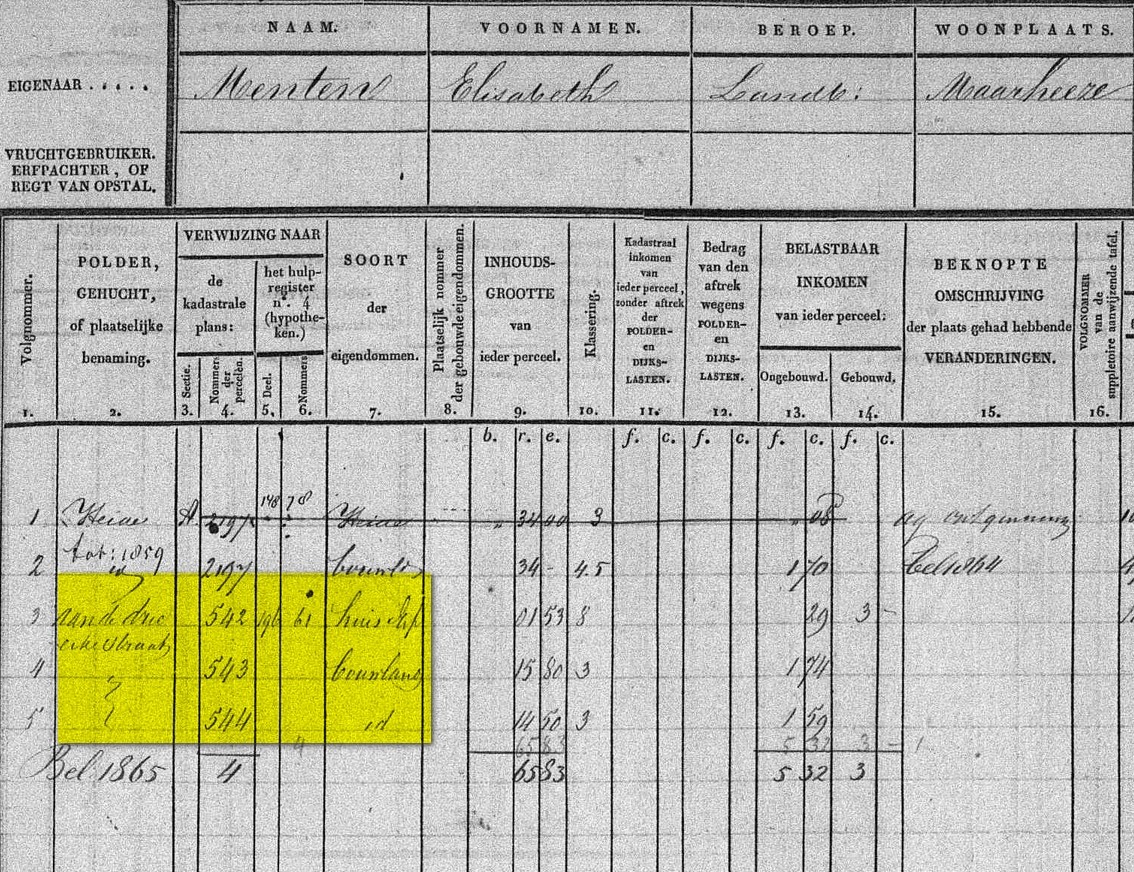 NAAM. VOORNAMEN. BEROEP. WOONPLAATS.
EIGENAAR ..... Menten Elisabeth Landb: Maarheeze
VRUCHTGEBRUIKER.
ERFPACHTER, OF
REGT VAN OPSTAL.
Volgnommer.
1.
POLDER,
GEHUCHT,
of plaatselijke
benaming.
2.
VERWIJZING NAAR
de
kadastrale
plans:
Sectie.
3.
Nommers
der
perceelen.
4.
het hulp-
register
n°. 4
(hypothe-
ken.)
Deel.
5.
Nommers
6.
SOORT
der
eigendommen.
7.
Plaatselijk nommer
der gebouwde eigendommen.
8.
INHOUDS-
GROOTTE
van
ieder perceel.
9.
Klassering.
10.
Kadastraal
inkomen
van
ieder perceel,
zonder aftrek
der
POLDER-
en
DIJKS-
LASTEN.
11.
Bedrag
van den
aftrek
wegens
POLDER-
en
DIJKS-
LASTEN.
12.
BELASTBAAR
INKOMEN
van ieder perceel:
Ongebouwd.
13.
Gebouwd.
14.
BEKNOPTE
OMSCHRIJVING
der plaats gehad hebbende
VERANDERINGEN.
15.
VOLGNOMMER
van de
suppletoire aanwijzende tafel.
16.
b. r. e. f. c. f. c. f. c. f. c.
148 78
1 Heide A. 2197 Heide " 34 00 3 " 08 ontginning
1859
2 id 2197 bouwld 34 - 4.5 1 70 Bel 1864
3 aan de drie 542 196 61 huis 01 53 8 29 3 -
eike straat
4 " 543 bouwland 15 80 3 1 74
5 544 id 14 50 3 1 59
4 65 83 5 32 3 -
Bel 1865 4 65 83 5 32 3